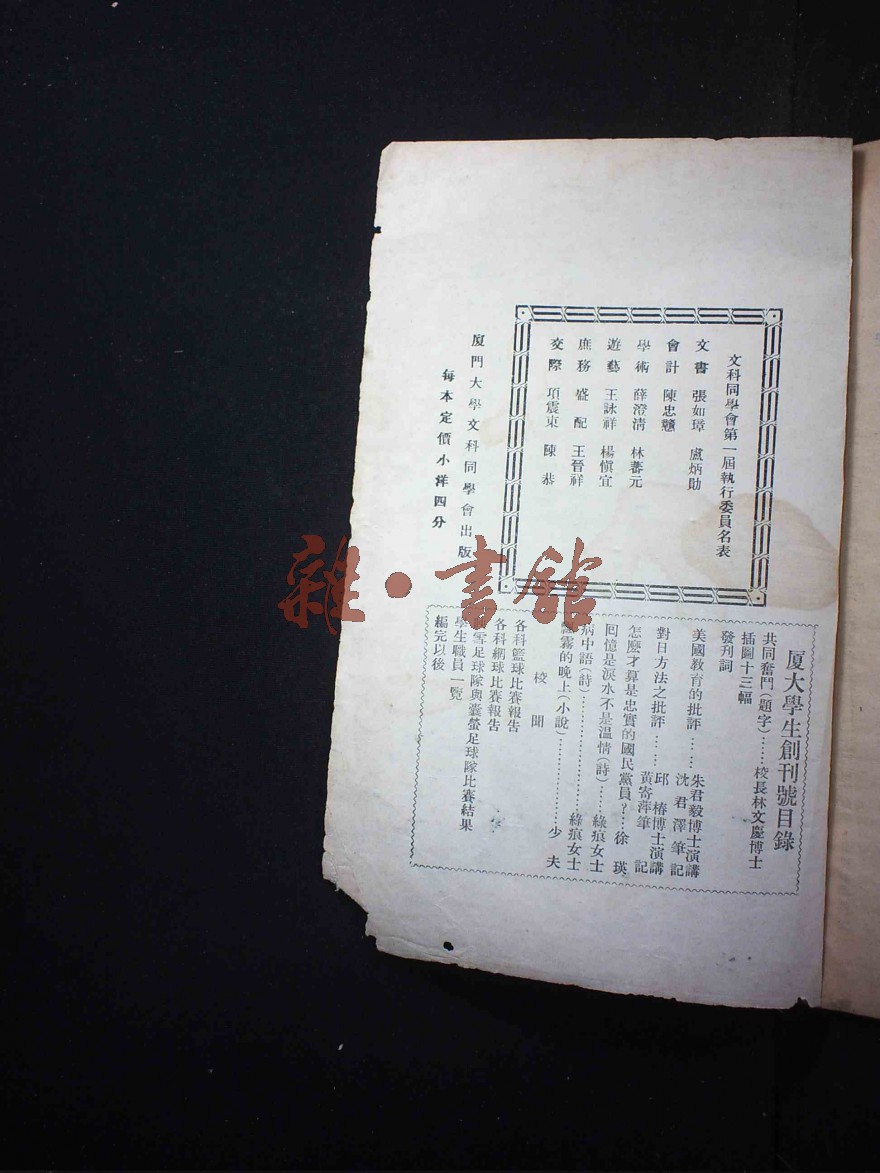 文科同學會第一屆執行委員名表
文書 張如璋 盧炳勛
會計 陳忠戇
學術 薛澄清 林蕃元
遊藝 王詠祥 楊慎宜
庶務 盛配 王晉祥
交際 項震東 陳恭
廈門大學文科同學會出版
每本定價小洋四分
厦大學生創刊號目錄
共同奮鬥(題字)……校長林文慶博士
插圖十三幅
發刊詞
美國教育的批評……朱君毅博士演講
沈君澤筆記
對日方法之批評……邱椿博士演講
黃寄萍筆記
怎麼才算是忠實的國民黨員?……徐瑛
回憶是淚水不是溫情(詩)……綠痕女士
病中語(詩)……綠痕女士
霧的晚上(小說)……少夫
校聞
各科籃球比賽報告
各科網球比賽報告
雪足球隊與囊螢足球隊比賽結果
學生職員一覽
編完以後
雜·書館